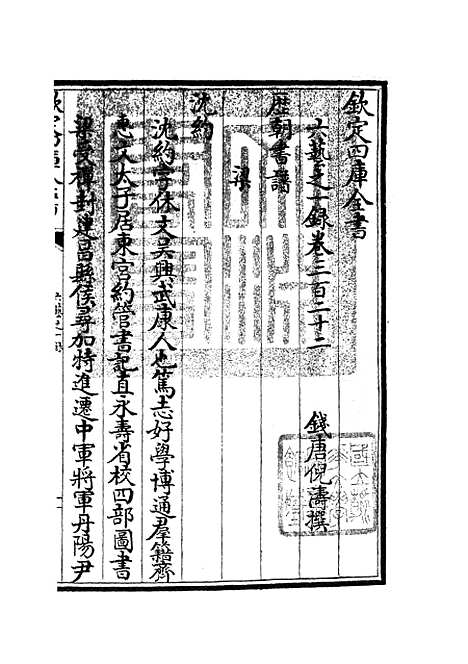 欽定四庫全書
六藝之一錄卷三百二十二
錢唐倪濤撰
歴朝書譜
梁
沈約
沈約字休文吳興武康人也篤志好學博通羣籍齊
惠文太子居東宮約管書記直永壽省校四部圖書
梁受禪封建昌縣侯尋加特進遷中軍將軍丹陽尹